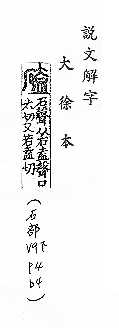 説文解字
大徐本
石聲从石盍聲口
太切又苦盍切
(石部
V9下
P4
b4)